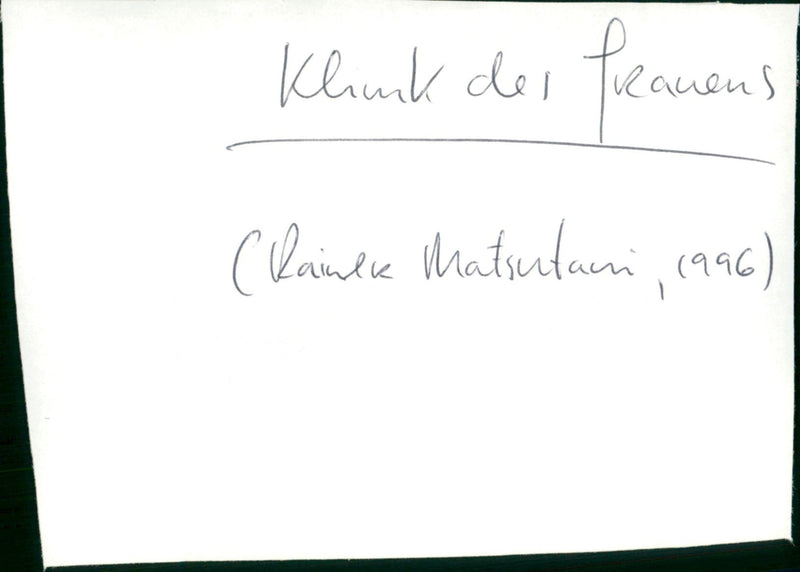 Klinik des Grauens
(Rainer Matsutani, 1996)